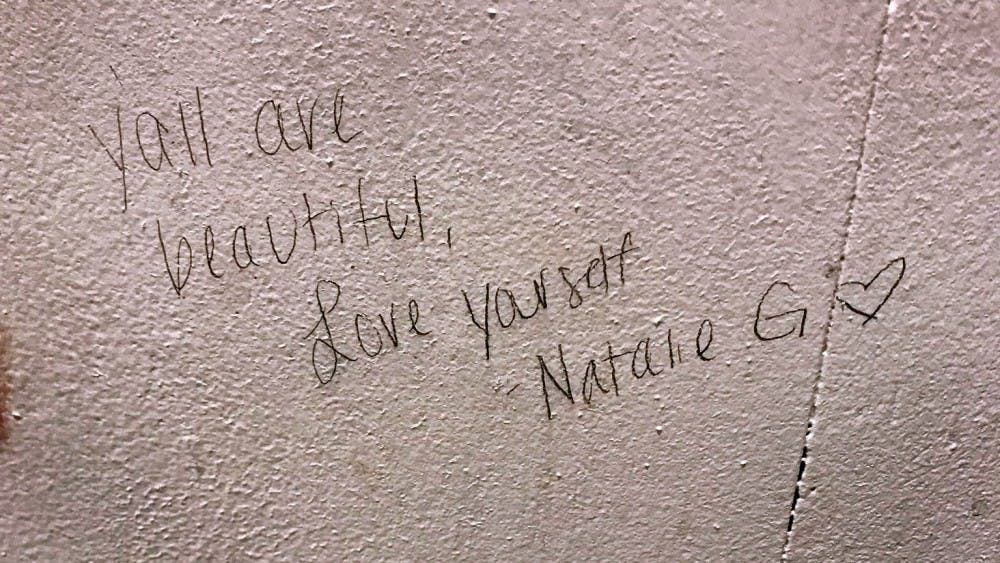 Yall are
beautiful,
Love Yourself
-Natalie G ♡